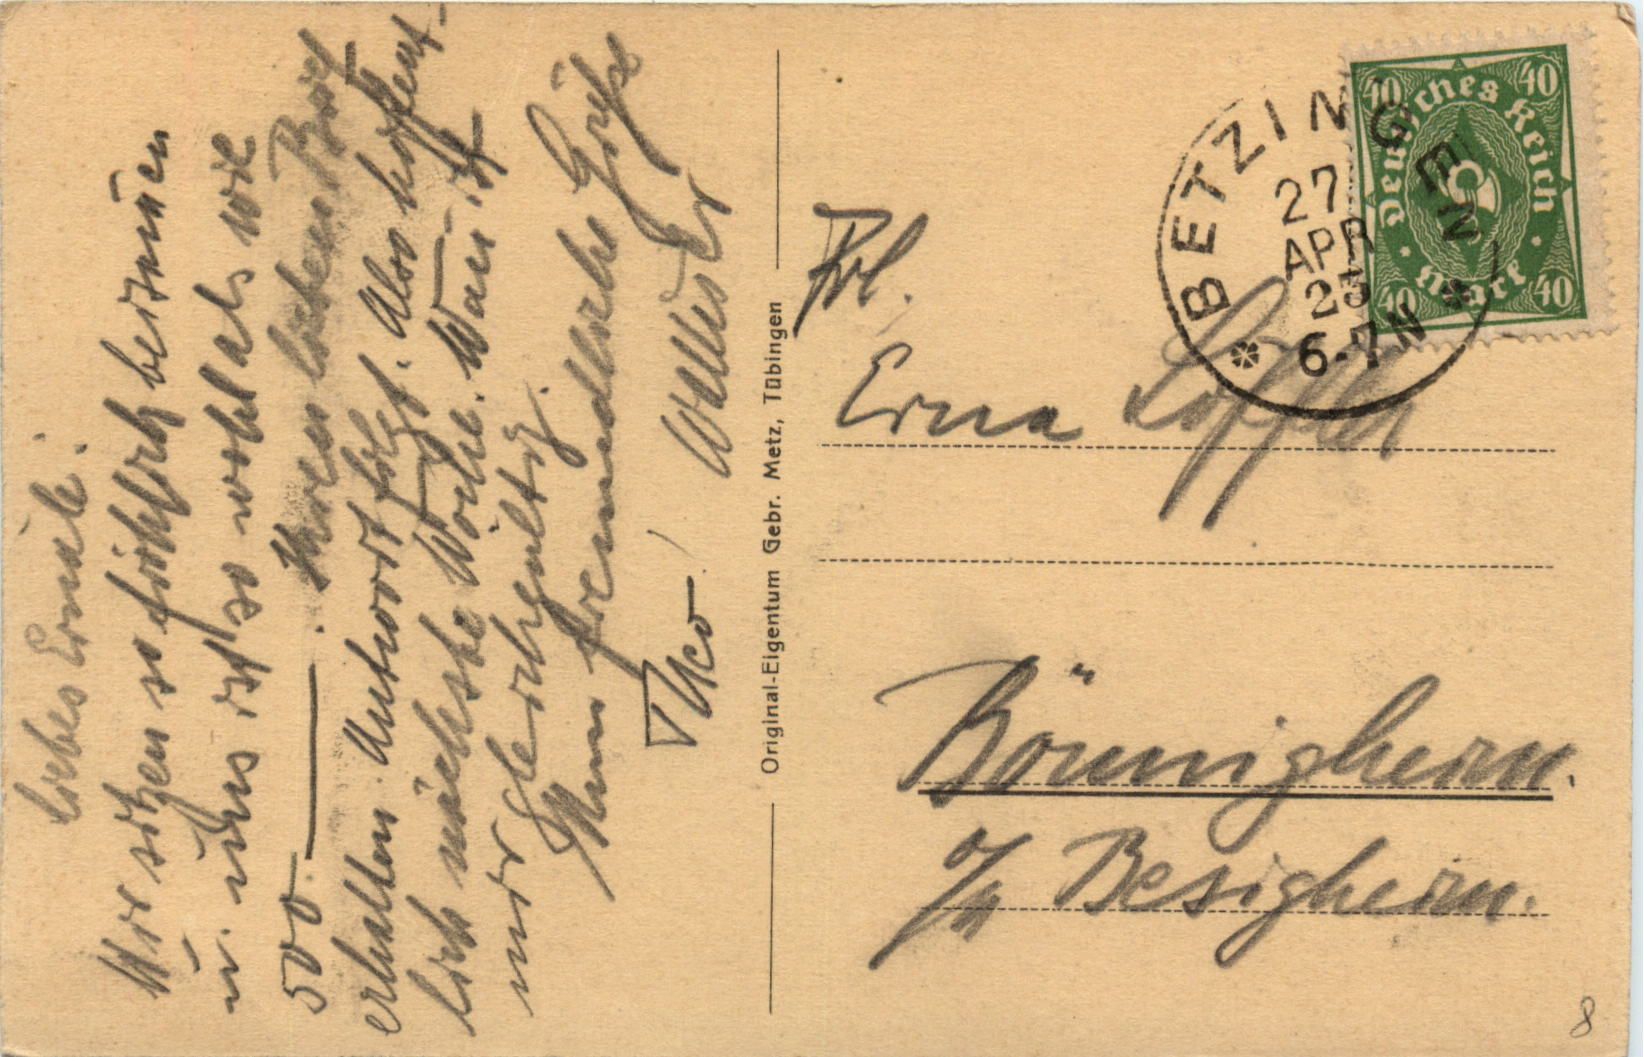 Liebes Ernale!
Wir sitzen so fröhlich beisammen
u. uns ist so wohl als wie
500. ——— Ihren lieben Brief
erhalten. Antwort folgt. Also hoffent-
lich nächste Woche. Wann ist
mir gleichgültig.
Nun freundliche Grüße
Ihr
Original-Eigentum Gebr. Metz, Tübingen
Frl.
Erna Löffler
Bönnigheim.
o/n Besigheim.
BETZINGEN
27
APR
23
6-7N
Deutsches Reich
40 40
Mark
40 40
8